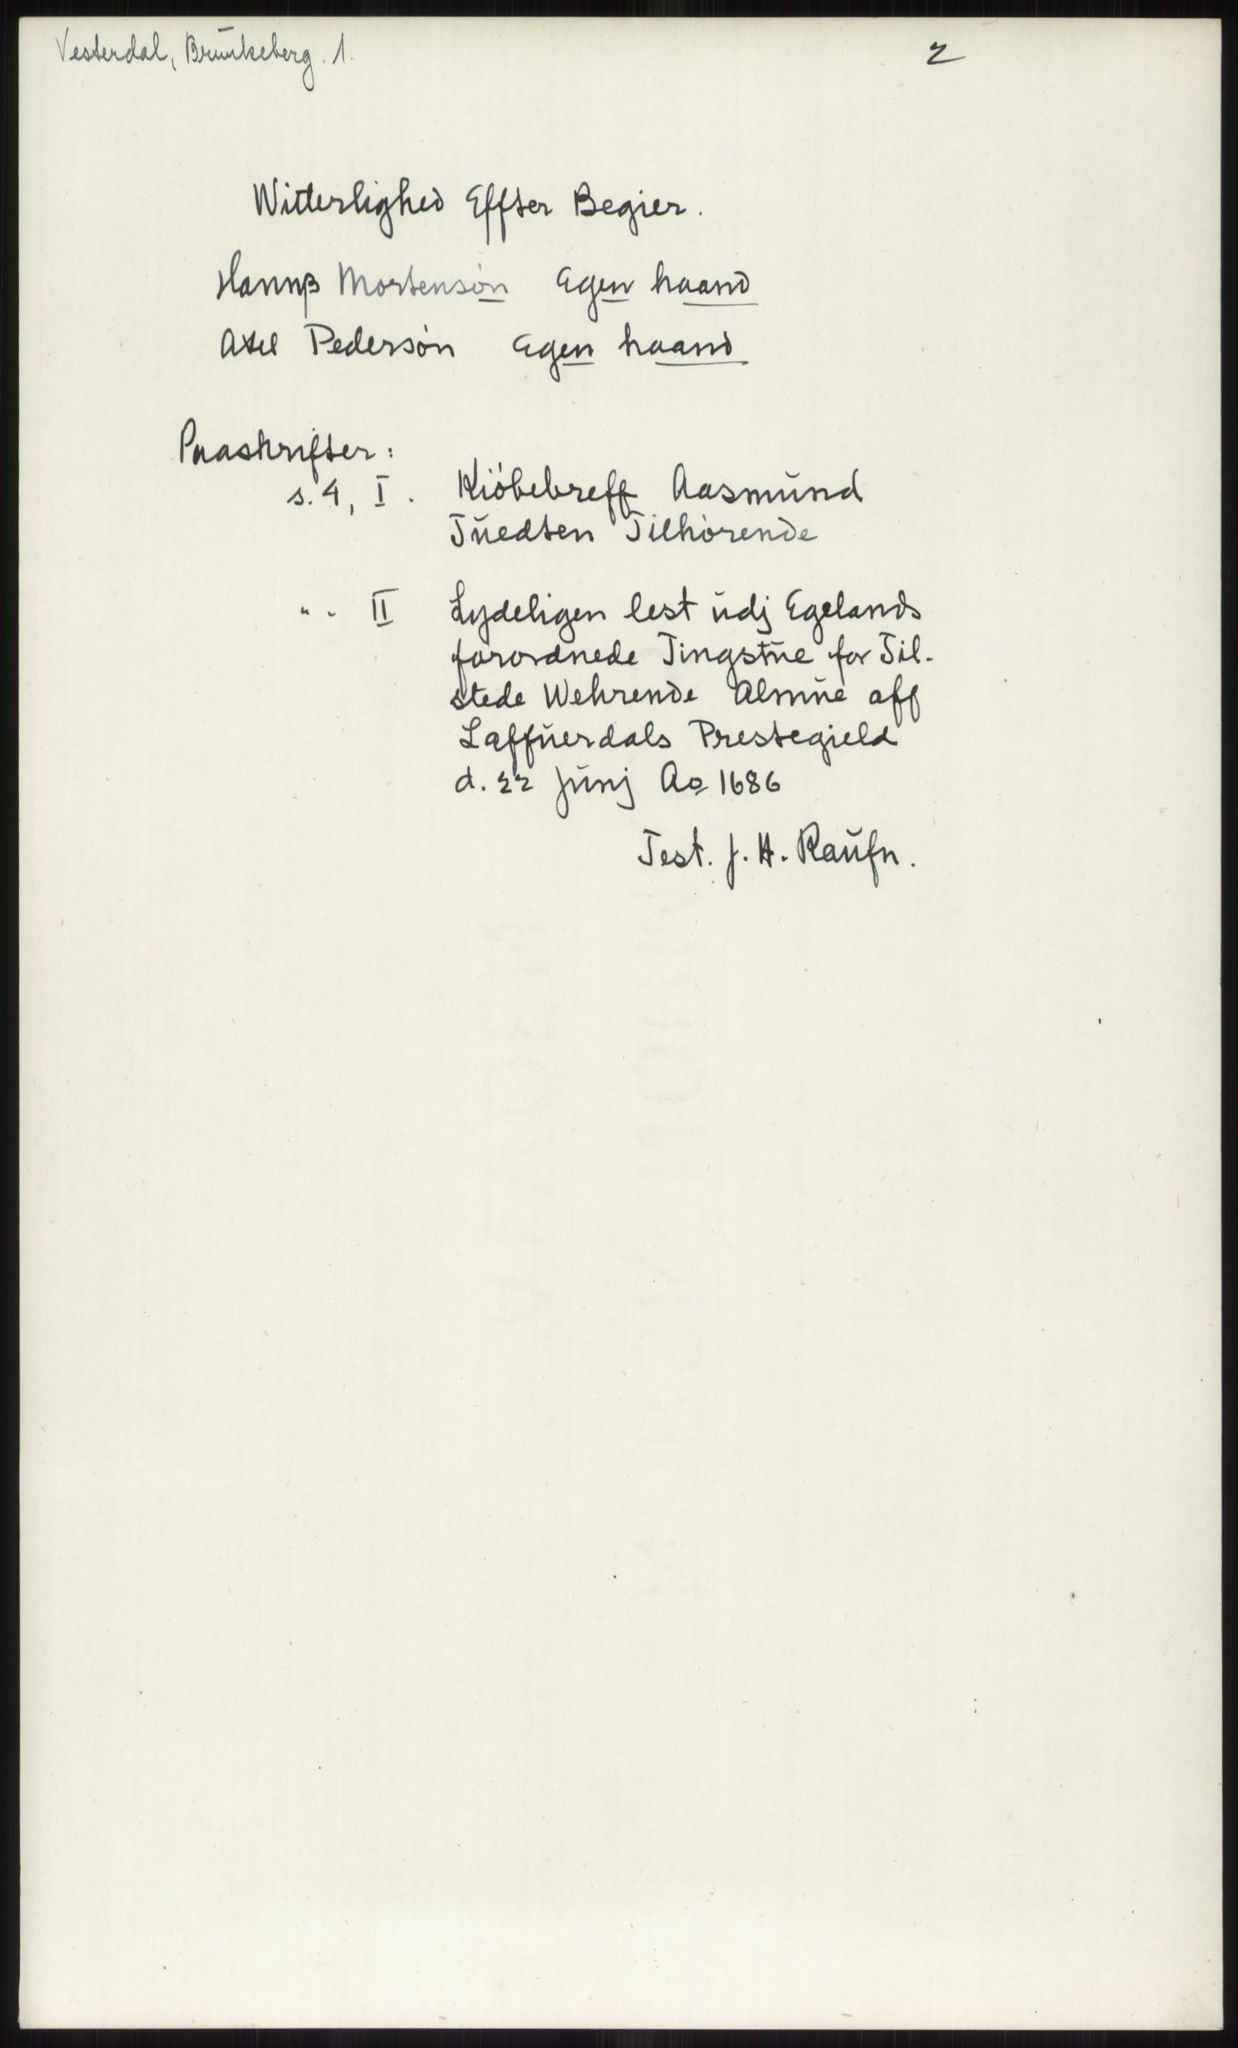 Vesterdal, Brunkeberg. 1.
2
Witterlighed Effter Begier.
Hannß Mortensøn Egen haand
Axel Pedersøn Egen haand
Paaskrifter:
s. 4, I. Kiøbebreff Aasmŭnd
Tŭedten Tilhørende
" - II Lydeligen lest ŭdj Egelands
forordnede Tingstŭe for Til-
stede Wehrende Almŭe aff
Laffŭerdals Prestegield
d. 22 Jŭnj Ao 1686
Test. J. H. Raŭfn.